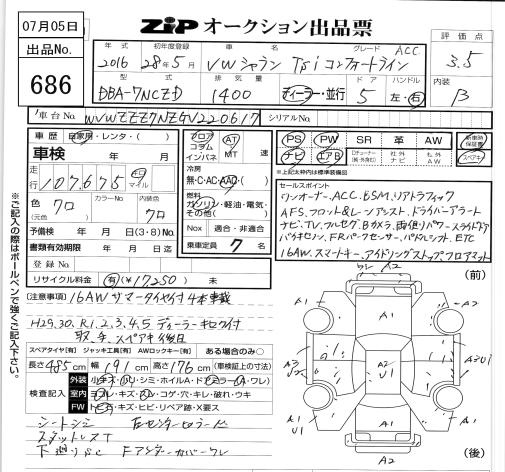 07月05日
ZiP オークション出品票
出品No.
686
年式
初年度登録
車名
グレード
2016
28年5月
VWシャラン TSi コンフォートライン
ACC
評価点
3.5
型式
排気量
ドア
ハンドル
DBA-7NCZD
1400
ディーラー・並行
5
左・右
内装
B
車台No.
WVWZZZ7NZGV220617
シリアルNo.
車歴
自家用・レンタ・( )
車検
年 月
走行
107,675
km
マイル
色
クロ
(元色 )
カラーNo.
内装色
クロ
予備検 年 月(3・8)No.
書類有効期限 年 月 日
登録No.
リサイクル料金 (有)(¥17250) 無
フロア
コラム
インパネ
AT
MT
速
冷房
無・C・AC・AAC・( )
燃料
ガソリン・軽油・電気・
その他( )
Nox 適合・非適合
乗車定員 7 名
PS
PW
SR
革
AW
新車時保証書
ナビ
エアB
社外ナビ
社外AW
スペアキー
※上記太枠内は標準装備品
セールスポイント
ワンオーナー、ACC、BSM、リアトラフィック
AFS、フロント&レーンアシスト、ドライバーアラート
ナビ、TV、フルセグ、Bカメラ、両側パワースライドドア
バイキセノン、FRパークセンサー、パドルシフト、ETC
16AW、スマートキー、アイドリングストップ、フロアマット
(注意事項) 16AW サマータイヤ付 4本車載
H29.30.R1.2.3.4.5 ディーラーキロク付
取・キ、スペアキ後日
スペアタイヤ[有] ジャッキ工具[有] AWロックキー[有] ある場合のみ○
長さ 485cm 幅 191cm 高さ 176cm (車検証上の寸法)
検査記入
外装
室内 コゲ・穴・キレ・破れ・ウキ
FW トビ石・キズ・ヒビ・リペア跡・X要ス
シートシミ
下廻りサビ Fアンダーカバーワレ
※ご記入の際はボールペンで強くご記入下さい。
(前)
(後)
A2
A1
A1
A2
A2
A3
A3U1
A1
U1
A1
A2